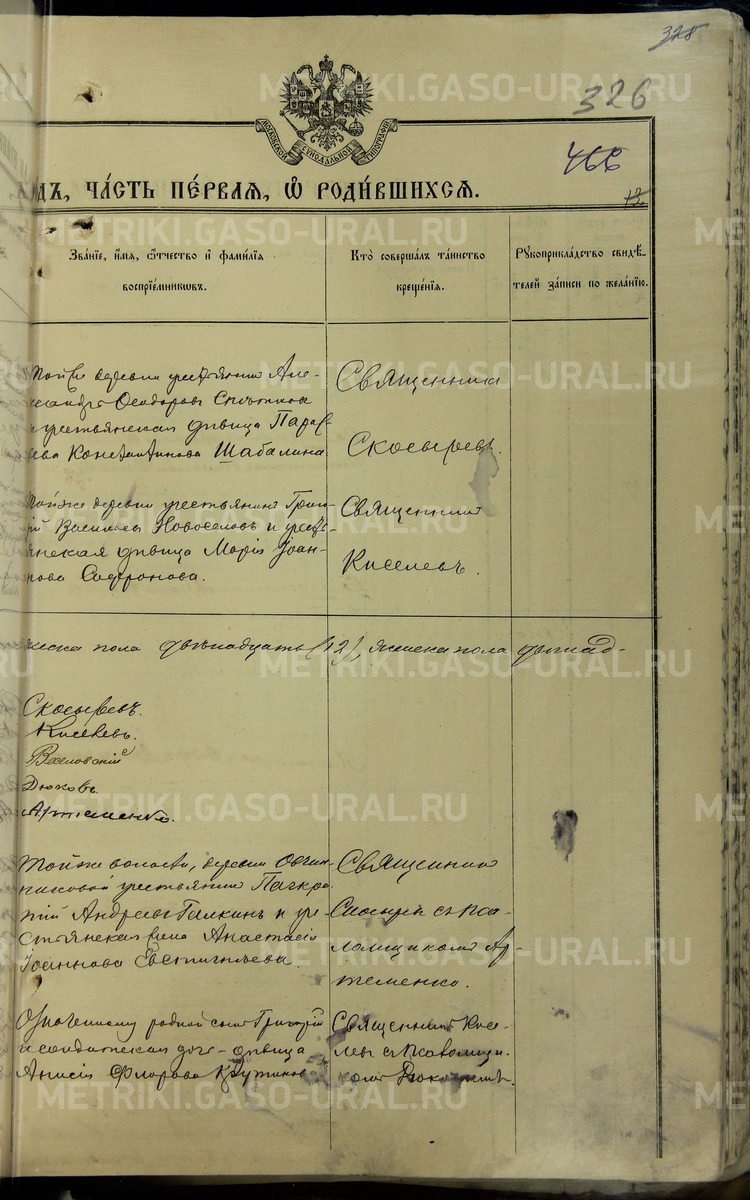 328
326
466
МОСКОВСКОЙ СѴНОДАЛЬНОЙ ТИПОГРАФІИ
ОДЪ, ЧА́СТЬ ПЕ́РВАЯ, Ѡ҆ РОДИ́ВШИХСЯ.
12.
Зва́нїе, и҆́мя, ѻ҆́тчество и҆ фами́лїя
воспрїе́мниковъ.
Кто̀ соверша́лъ та́инство
креще́нїя.
Рꙋкоприкла́дство свидѣ́-
телей за́писи по жела́нїю.
деревни крестьянинъ Але-
Ѳеодоровъ
крестьянская дѣвица Парас-
Константинова Шабалина
Священникъ
Скосыревъ.
тойже деревни крестьянинъ Григо-
рій Васильевъ Новоселовъ и кресть-
янская дѣвица Марія Іоан-
нова Сафронова.
Священникъ
Киселевъ.
мужеска пола двѣнадцать (12), женска пола
Скосыревъ.
Киселевъ.
Дюковъ.
Артеменко.
Тойже волости, деревни Овчин-
никовой крестьянинъ Панкра-
тій Андреевъ Галкинъ и кре-
стьянская Анастасія
Іоаннова Евстигнѣева.
Священникъ
Скосыревъ съ пса-
ломщикомъ Ар-
теменко.
родной сынъ Григорій
и солдатская дочь - дѣвица
Анисія Флорова
Священникъ Кисе-
левъ съ псаломщи-
комъ
METRIKI.GASO-URAL.RU